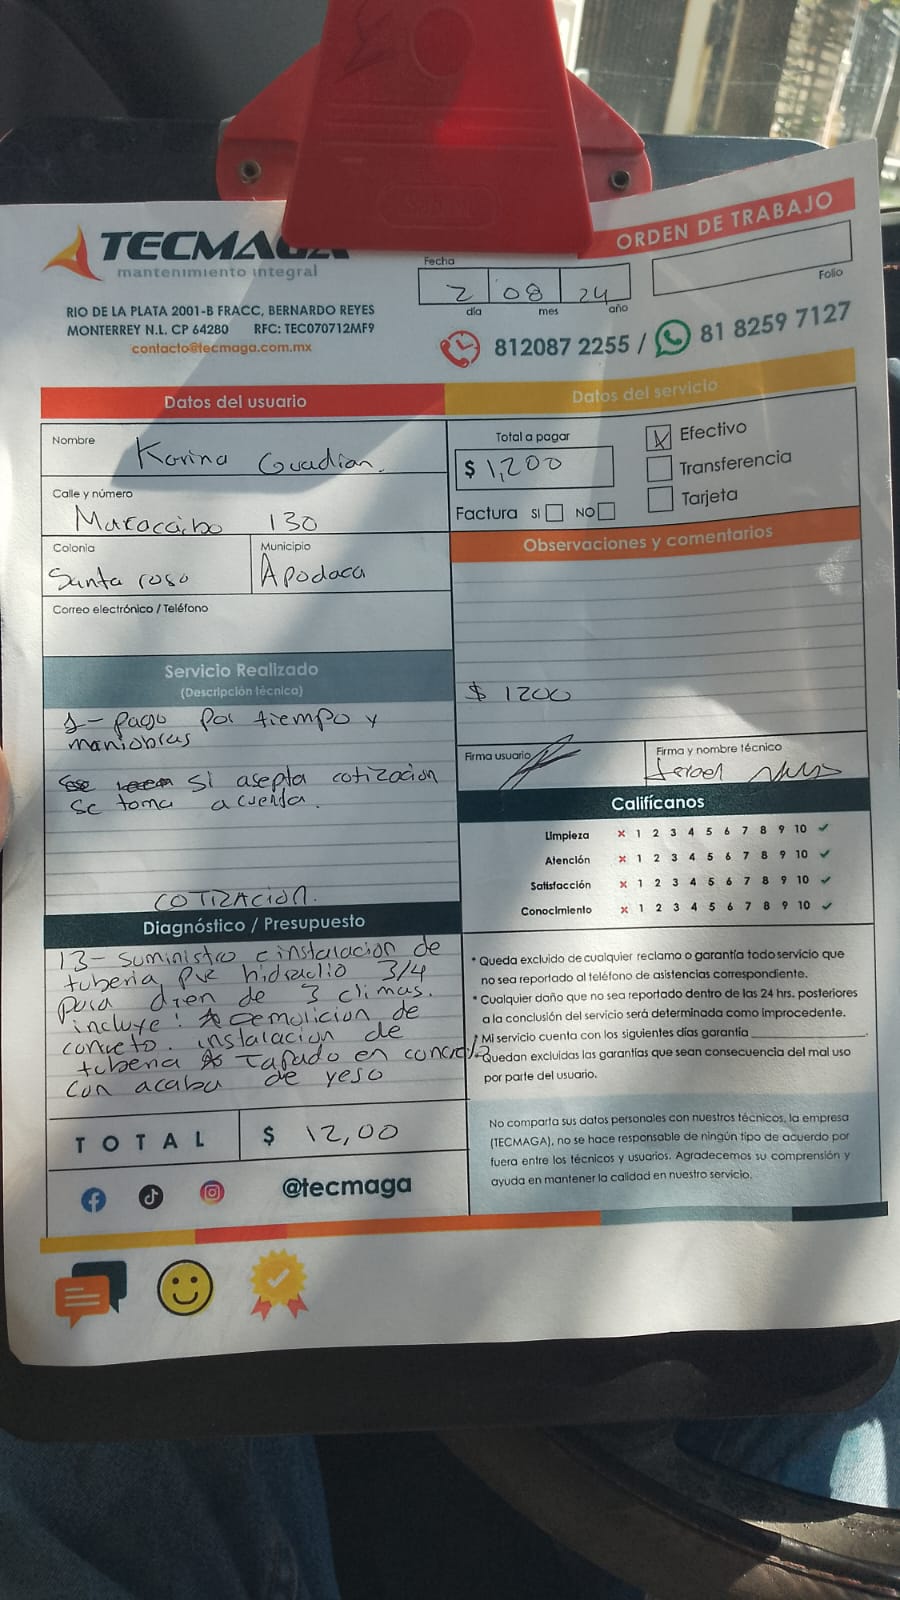 TECMAGA
mantenimiento integral
RIO DE LA PLATA 2001-B FRACC, BERNARDO REYES
MONTERREY N.L. CP 64280 RFC: TEC070712MF9
contacto@tecmaga.com.mx
ORDEN DE TRABAJO
Fecha
2 08 24
día mes año
Folio
812087 2255 / 81 8259 7127
Datos del usuario
Nombre
Karina Guadian.
Calle y número
Maraccibo 130
Colonia
Santa rosa
Municipio
Apodaca
Correo electrónico / Teléfono
Datos del servicio
Total a pagar
$ 1,200
Efectivo
Transferencia
Tarjeta
Factura SI NO
Observaciones y comentarios
$ 1200
Firma usuario
Firma y nombre técnico
Servicio Realizado
(Descripción técnica)
1- pago por tiempo y
maniobras
si asepta cotizacion
se toma acuenta.
COTIZACION.
Diagnóstico / Presupuesto
13- suministro e instalacion de
tuberia pvc hidraulio 3/4
para dren de 3 climas.
incluye! * Demolicion de
concreto. instalacion de
tuberia * Tapado en concreto
con acabu de yeso
TOTAL $ 12,00
@tecmaga
Califícanos
Limpieza × 1 2 3 4 5 6 7 8 9 10 ✓
Atención × 1 2 3 4 5 6 7 8 9 10 ✓
Satisfacción × 1 2 3 4 5 6 7 8 9 10 ✓
Conocimiento × 1 2 3 4 5 6 7 8 9 10 ✓
* Queda excluido de cualquier reclamo o garantía todo servicio que
no sea reportado al teléfono de asistencias correspondiente.
* Cualquier daño que no sea reportado dentro de las 24 hrs. posteriores
a la conclusión del servicio será determinada como improcedente.
* Mi servicio cuenta con los siguientes días garantía ____________.
* Quedan excluidas las garantías que sean consecuencia del mal uso
por parte del usuario.
No comparta sus datos personales con nuestros técnicos, la empresa
(TECMAGA), no se hace responsable de ningún tipo de acuerdo por
fuera entre los técnicos y usuarios. Agradecemos su comprensión y
ayuda en mantener la calidad en nuestro servicio.